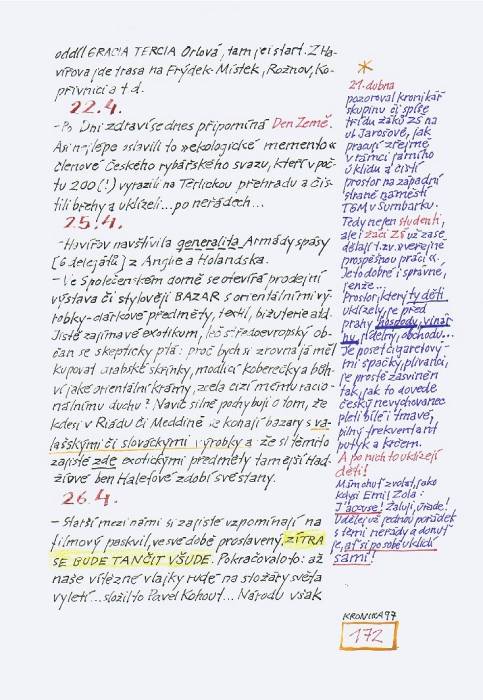 oddíl GRACIA TERCIA Orlová, tam je i start. Z Ha-
vířova jde trasa na Frýdek-Místek, Rožnov, Ko-
přivnici a t d.
22.4.
- Po Dni zdraví se dnes připomíná Den Země.
Asi nejlépe oslavili to »ekologické memento«
členové Českého rybářského svazu, kteří v poč-
tu 200 (!) vyrazili na Těrlickou přehradu a čis-
tili břehy a uklízeli... po neřádech...
25.4.
- Havířov navštívila generalita Armády spásy
[6 delegátů] z Anglie a Holandska.
- Ve Společenském domě se otevírá prodejní
výstava či stylověji BAZAR s orientálními vý-
robky - dárkové předměty, textil, bižuterie atd.
Jistě zajímavé exotikum, leč středoevropský ob-
čan se skepticky ptá: proč bych si zrovna já měl
kupovat arabské skříňky, modlicí koberečky a běh-
ví jaké orientální krámy, zcela cizí mému racio-
nálnímu duchu? Navíc silně pochybuji o tom, že
kdesi v Riádu či Meddíně se konají bazary s va-
lašskými či slováckými výrobky a že si těmito
zajisté zde exotickými předměty tamější Had-
žiové ben Halefové zdobí své stany.
26.4.
- Starší mezi námi si zajisté vzpomínají na
filmový paskvil, ve své době proslavený, ZÍTRA
SE BUDE TANČIT VŠUDE. Pokračovalo to: až
naše vítězné vlajky rudé na stožáry světa
vyletí... složil to Pavel Kohout... Národu však
21. dubna
pozoroval kronikář
skupinu či spíše
třídu žáků ZŠ na
ul. Jarošové, jak
pracují zřejmě
v rámci jarního
úklidu a čistí
prostor na západní
straně náměstí
TGM v Šumbarku.
Tedy nejen studenti,
ale i žáci ZŠ už zase
dělají t.zv. »veřejně
prospěšnou práci«.
Je to dobré i správné,
jenže...
Prostor, který ty děti
uklízely, je před
prahy hospody, vinár-
ny, jídelny, obchodu...
Je poset cigaretový-
mi špačky, plivanci,
je prostě zasviněn
tak, jak to dovede
český nevychovanec
pleti bílé i tmavé,
pilný frekventant
putyk a krčem.
A po nich to uklízejí
děti!
Mám chuť zvolat, jako
kdysi Emil Zola:
J'accuse! Žaluji, úřade!
Udělej už jednou pořádek
s těmi nerády a donuť
je, ať si po sobě uklidí
sami!
KRONIKA 97
172